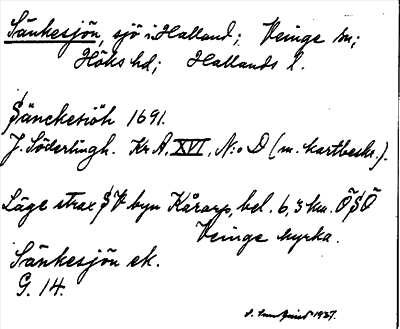 Sänkesjön, sjö i Halland; Veinge sn;
Höks hd; Hallands l.
Sänckesiöh 1691.
J. Söderlingh. Kr. A. XVI, N:o D (m. kartbeskr.).
Läge strax SV byn Kårarp, bel. 6,3 km. ÖSÖ
Veinge kyrka.
Sänkesjön ek.
G. 14.
1927.